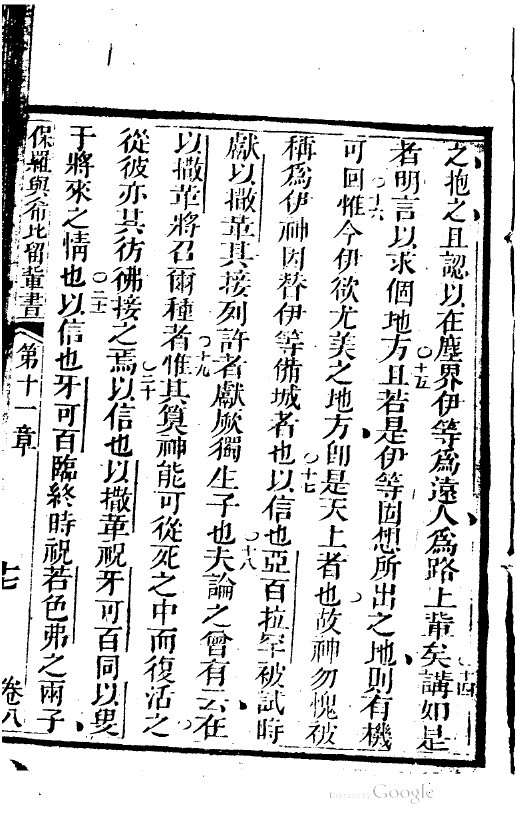 之抱之且認以在塵界伊等為遠人為路上輩矣○十四講如是
者明言以求個地方○十五且若是伊等回想所出之地則有機
可回○十六惟今伊欲尤美之地方即是天上者也故神勿愧被
稱為伊神因替伊等備城者也○十七以信也亞百拉罕被試時
獻以撒革其接列許者獻厥獨生子也○十八夫論之曾有云在
以撒革將召爾種者○十九惟其算神能可從死之中而復活之
從彼亦其彷彿接之焉○二十以信也以撒革祝牙可百同以叟
于將來之情也○二十一以信也牙可百臨終時祝若色弗之兩子
保羅與希比留輩書 第十一章 十七 卷八
Digitized by Google